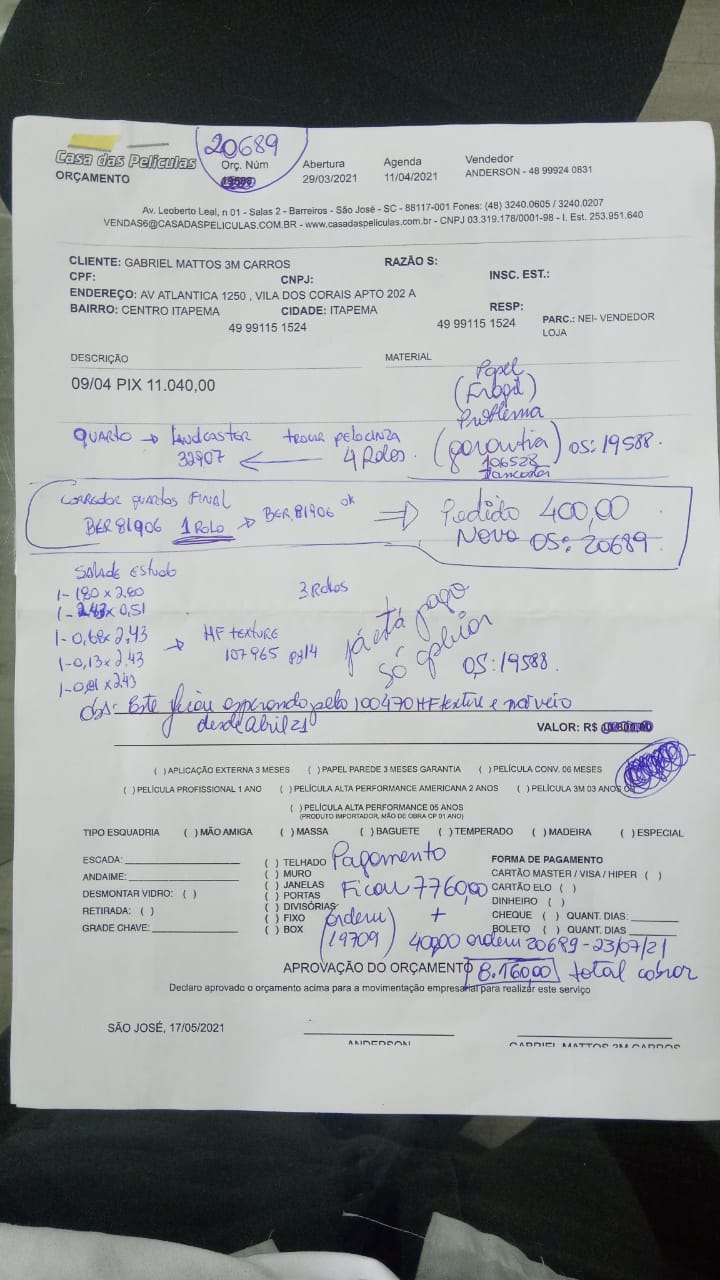 20689
Casa das Películas
ORÇAMENTO
Orç. Núm
Abertura
29/03/2021
Agenda
11/04/2021
Vendedor
ANDERSON - 48 99924 0831
Av. Leoberto Leal, n 01 - Salas 2 - Barreiros - São José - SC - 88117-001 Fones: (48) 3240.0605 / 3240.0207
VENDAS6@CASADASPELICULAS.COM.BR - www.casadaspeliculas.com.br - CNPJ 03.319.178/0001-98 - I. Est. 253.951.640
CLIENTE: GABRIEL MATTOS 3M CARROS RAZÃO S:
CPF: CNPJ: INSC. EST.:
ENDEREÇO: AV ATLANTICA 1250 , VILA DOS CORAIS APTO 202 A
BAIRRO: CENTRO ITAPEMA CIDADE: ITAPEMA RESP:
49 99115 1524 49 99115 1524 PARC.: NEI- VENDEDOR
LOJA
DESCRIÇÃO MATERIAL
09/04 PIX 11.040,00
Papel
(Frágil)
Problema
QUARTO → trocar pelo cinza (garantia) OS: 19588.
32907 ← 4 Rolos.
106528
CORREDOR QUARTOS FINAL
BER 81906 1 ROLO → BER, 81906 ok ⇒ Pedido 400,00
Novo OS: 20689
Sala de Estudo
3 Rolos
1- 1,80 x 2,80
1- 2,43 x 0,51
1- 0,68 x 2,43 → HF TEXTURE
107965 Pg14
1- 0,13 x 2,43
1- 0,81 x 2,43
já está pago
só OS: 19588.
Obs: Este ficou esperando pelo 100470 HF texture e não veio
desde Abril 21
VALOR: R$
( ) APLICAÇÃO EXTERNA 3 MESES ( ) PAPEL PAREDE 3 MESES GARANTIA ( ) PELÍCULA CONV. 06 MESES
( ) PELÍCULA PROFISSIONAL 1 ANO ( ) PELÍCULA ALTA PERFORMANCE AMERICANA 2 ANOS ( ) PELÍCULA 3M 03 ANOS
( ) PELÍCULA ALTA PERFORMANCE 05 ANOS
(PRODUTO IMPORTADOR, MÃO DE OBRA CP 01 ANO)
TIPO ESQUADRIA ( ) MÃO AMIGA ( ) MASSA ( ) BAGUETE ( ) TEMPERADO ( ) MADEIRA ( ) ESPECIAL
ESCADA:
ANDAIME:
DESMONTAR VIDRO: ( )
RETIRADA: ( )
GRADE CHAVE:
( ) TELHADO
( ) MURO
( ) JANELAS
( ) PORTAS
( ) DIVISÓRIAS
( ) FIXO
( ) BOX
Pagamento
Ficou 7760,00
(ordem +
19709) 400,00 ordem 20689 - 23/07/21
FORMA DE PAGAMENTO
CARTÃO MASTER / VISA / HIPER ( )
CARTÃO ELO ( )
DINHEIRO ( )
CHEQUE ( ) QUANT. DIAS:
BOLETO ( ) QUANT. DIAS
APROVAÇÃO DO ORÇAMENTO 8.160,00 total cobrar
Declaro aprovado o orçamento acima para a movimentação empresarial para realizar este serviço
SÃO JOSÉ, 17/05/2021
ANDERSON
GABRIEL MATTOS 3M CARROS